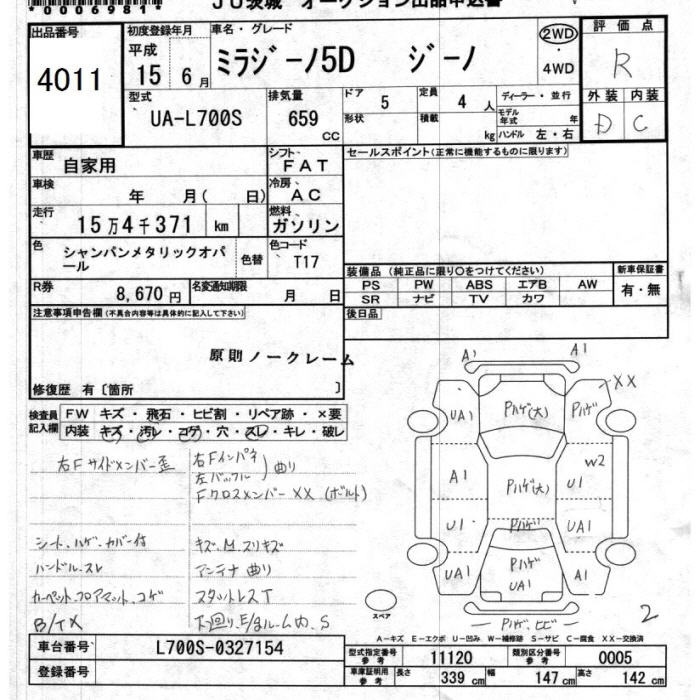 *000698​1*
JU茨城 オークション出品申込書
出品番号
4011
初度登録年月
平成
15 6月
車名・グレード
ミラジーノ5D ジーノ
2WD
・
4WD
評価点
R
外装 内装
D C
型式
UA-L700S
排気量
659
CC
ドア
5
形状
定員
4人
積載
kg
ディーラー・並行
モデル年式 年
ハンドル 左・右
車歴
自家用
シフト
FAT
車検
年 月( 日)
冷房
AC
走行
15万4千371 km
燃料
ガソリン
色
シャンパンメタリックオパール
色替
色コード
T17
R券
8,670円
名変通知期限
月 日
セールスポイント(正常に機能するものに限ります)
装備品(純正品に限り○をつけてください)
PS PW ABS エアB AW
SR ナビ TV カワ
新車保証書
有・無
後日品
注意事項申告欄(不具合内容等は具体的に記入して下さい)
原則ノークレーム
修復歴 有〔箇所 〕
検査員記入欄
FW キズ・飛石・ヒビ割・リペア跡・×要
内装 キズ・汚レ・コゲ・穴・スレ・キレ・破レ
右Fサイドメンバー歪
右Fインパネ
左バッフル
曲り
Fクロスメンバー XX (ボルト)
シート、ハゲ、カバー付
キズ、M、スリキズ
ハンドル、スレ
アンテナ曲り
カーペット、フロアマット、コゲ
スタットレスT
B/TX
下回り、E/gルーム内、S
A1 A1
XX
UA1 Pハゲ(大) Pハゲ
W2
A1 Pハゲ(大) U1
U1 Pハゲ UA1
UA1 Pハゲ UA1 A1
Pハゲ、ヒビ
スペア
2
A-キズ E-エクボ U-凹み W-補修跡 S-サビ C-腐食 XX-交換済
車台番号
L700S-0327154
登録番号
型式指定番号
参考
11120
類別区分番号
参考
0005
車庫証明用
参考
長さ 339 cm 幅 147 cm 高さ 142 cm